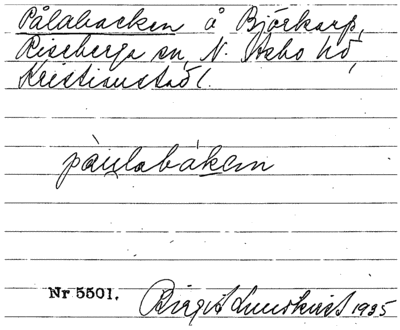 Pålabacken å Björkarp,
Riseberga sn, N. Åsbo hd,
Kristianstad l.
paulabaken
Nr 5501.
Birgit Lundkvist 1935